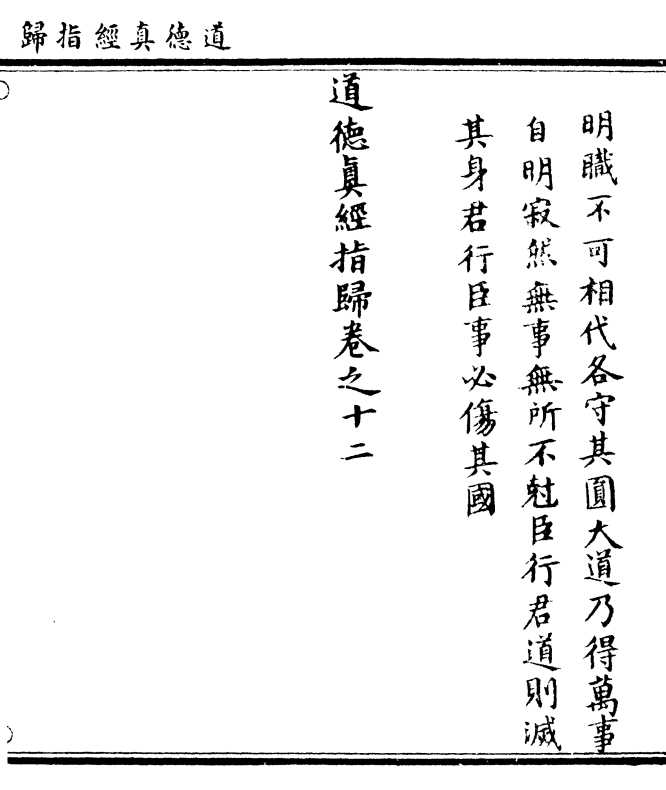 道德真經指歸
明職不可相代各守其圓大道乃得萬事
自明寂然無事無所不尅臣行君道則滅
其身君行臣事必傷其國
道德眞經指歸卷之十二